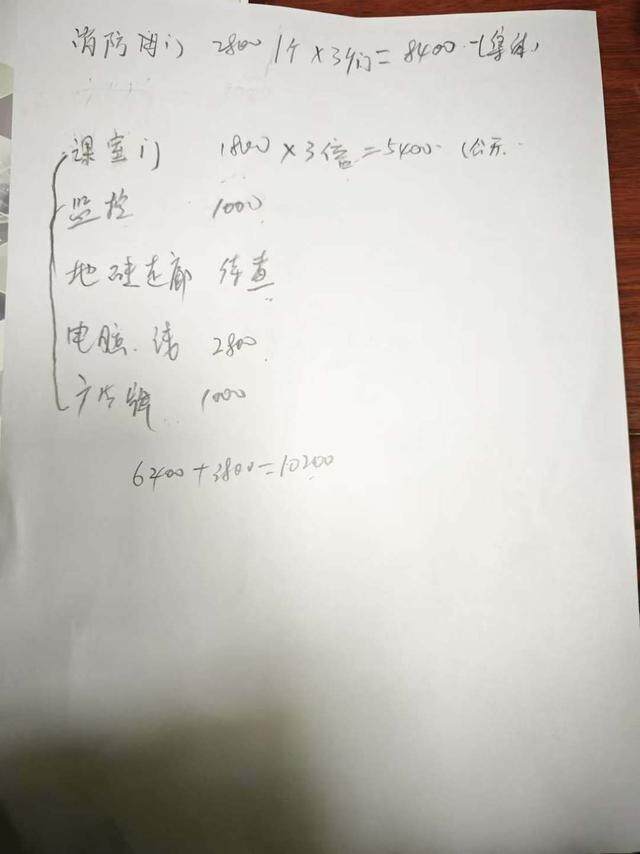 消防门 2800 1个×3个门=8400
课室门 1800×3倍=5400 (公
监控 1000
地 走廊 待查
电脑.线 2800
广告牌 1000
6400+3800=10200